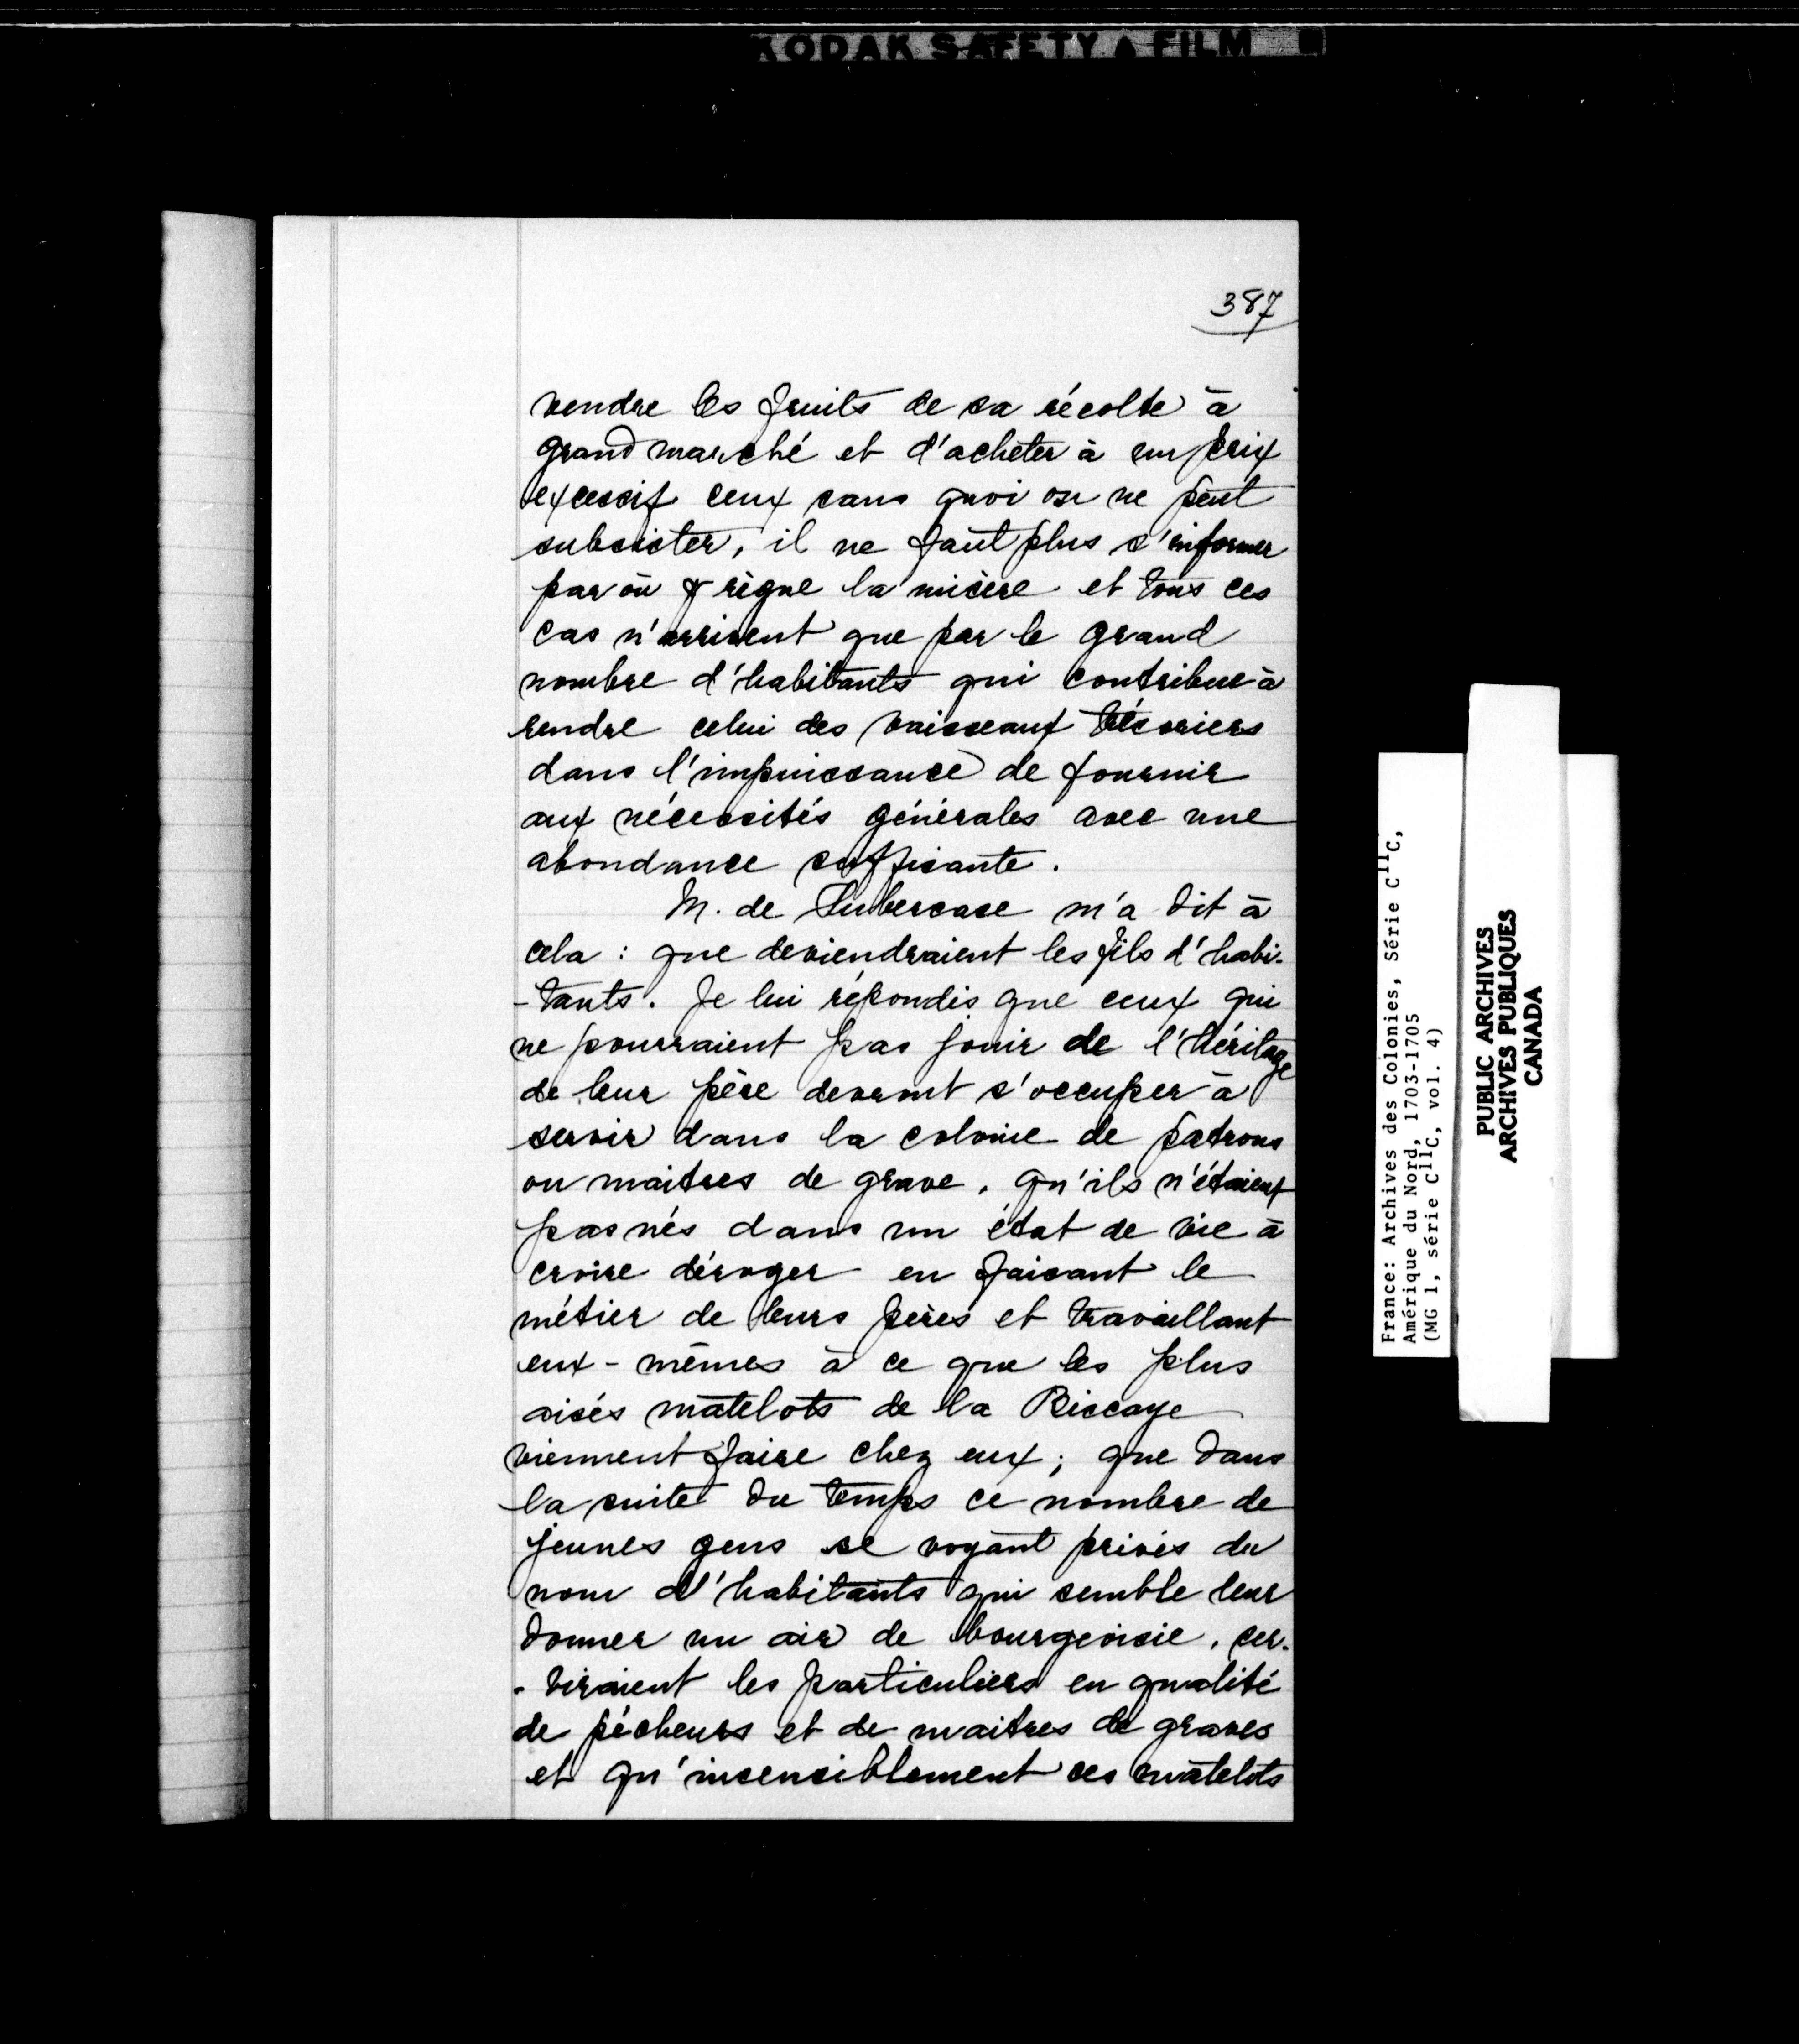 KODAK SAFETY FILM
387
vendre les fruits de sa récolte à
grand marché et d'acheter à un prix
excessif ceux sans quoi on ne peut
subsister, il ne faut plus s'informer
par où y règne la misère et tous ces
cas n'arrivent que par le grand
nombre d'habitants qui contribue à
rendre celui des vaisseaux
dans l'impuissance de fournir
aux nécessités générales avec une
abondance suffisante.
M. de Subercase m'a dit à
cela : que deviendraient les fils d'habi-
-tants. Je lui répondis que ceux qui
ne pourraient pas jouir de l'héritage
de leur père devront s'occuper à
servir dans la colonie de patrons
ou maitres de grave, qu'ils n'étaient
pas nés dans un état de vie à
croire déroger en faisant le
métier de leurs pères et travaillant
eux-mêmes à ce que les plus
aisés matelots de la Biscaye
viennent faire chez eux; que dans
la suite du temps ce nombre de
jeunes gens se voyant privés du
nom d'habitants qui semble leur
donner un air de bourgeoisie, ser-
-viraient les particuliers en qualité
de pêcheurs et de maitres de graves
et qu'insensiblement ces matelots
France: Archives des Colonies, série C11C,
Amérique du Nord, 1703-1705
(MG 1, série C11C, vol. 4)
PUBLIC ARCHIVES
ARCHIVES PUBLIQUES
CANADA